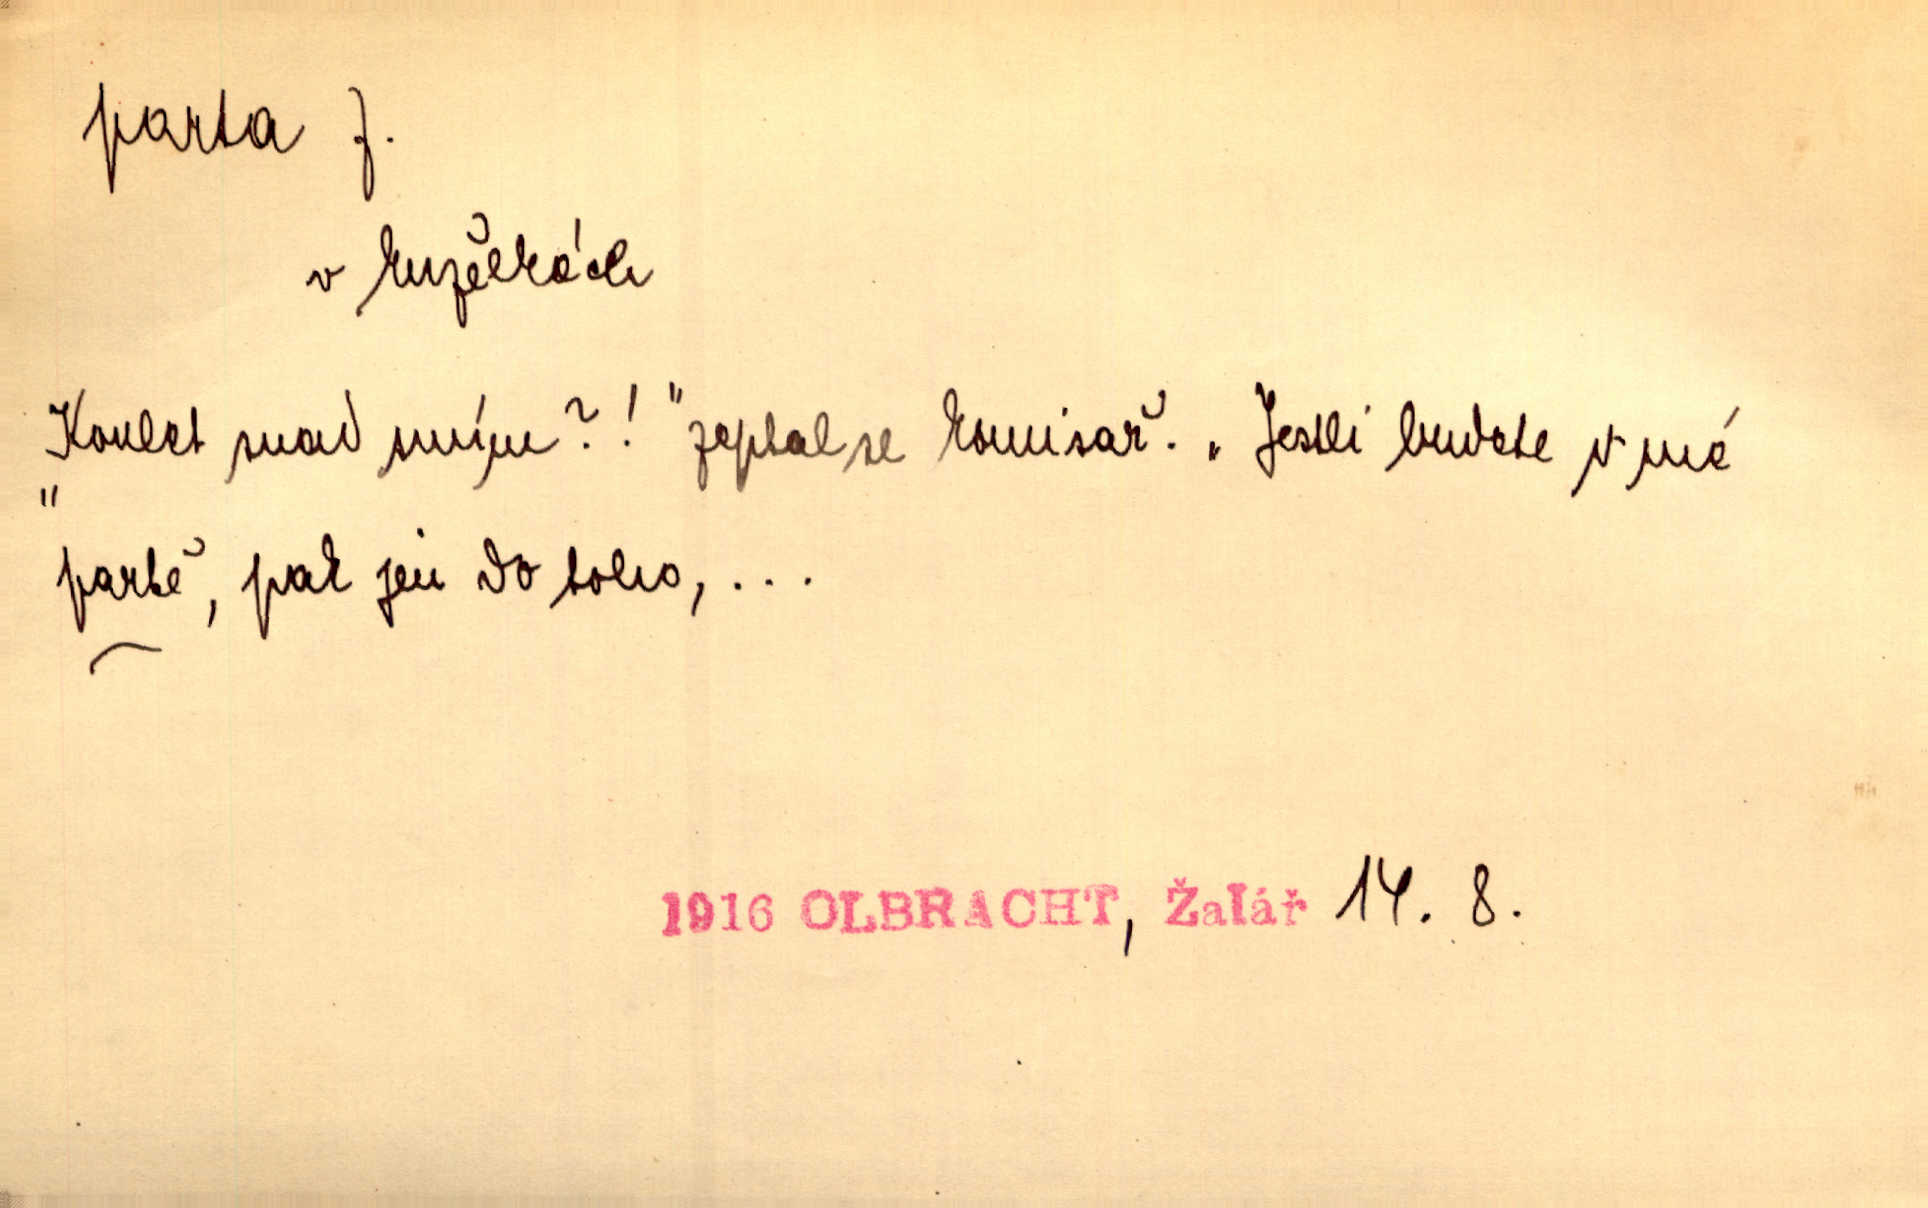 parta f.
v kuželkách
„Koulet snad smím?!" zeptal se komisař. „Jestli budete v mé
partě, pak jen do toho, ...
1916 OLBRACHT, Žalář 14. 8.